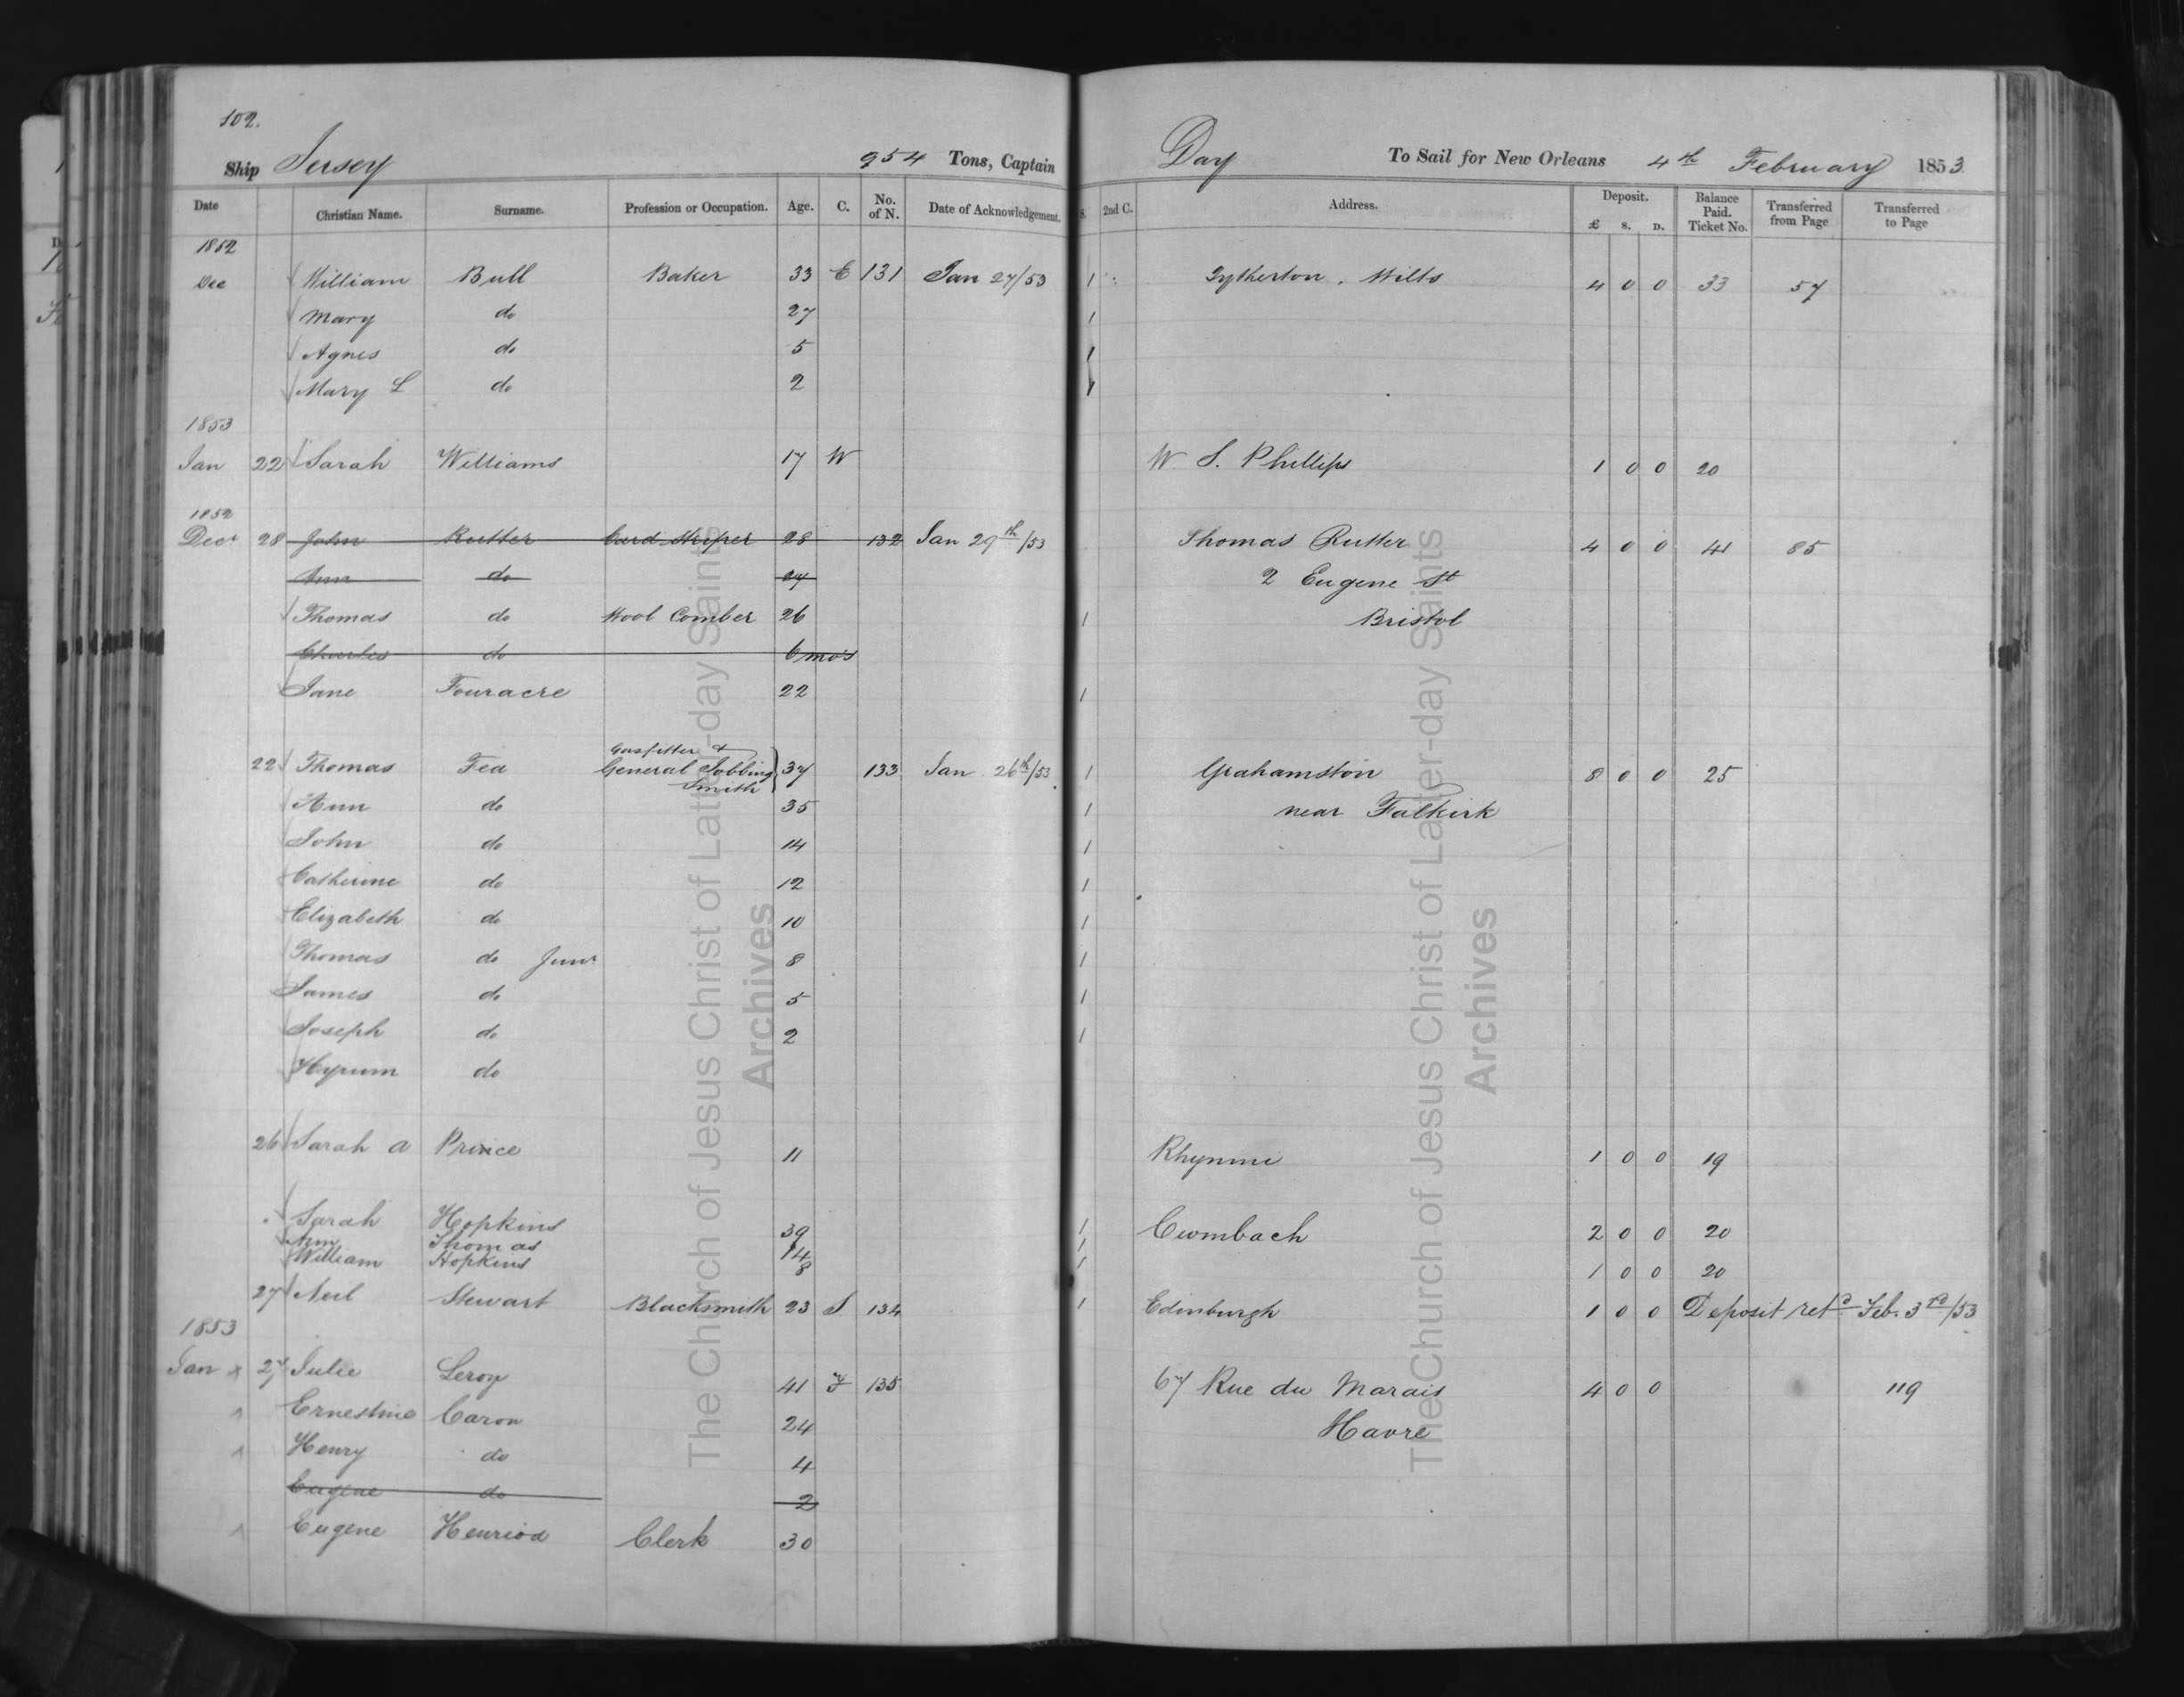 102.
Ship Jersey 954 Tons, Captain Day To Sail for New Orleans 4th February 1853
Date Christian Name. Surname. Profession or Occupation. Age. C. No. of N. Date of Acknowledgement. S. 2nd C. Address. Deposit. £ S. D. Balance Paid. Ticket No. Transferred from Page Transferred to Page
1852
Dec William Bull Baker 33 E 131 Jan 27/53 1 Tytherton, Wilts 4 0 0 33 57
Mary do 27 1
Agnes do 5 1
Mary L do 2 1
1853
Jan 22 Sarah Williams 17 W W. S. Phillips 1 0 0 20
1852
Decr 28 John Rutter Card Striper 28 132 Jan 29th/53 Thomas Rutter 4 0 0 41 85
Ann do 27 2 Eugene St
Thomas do Wool Comber 26 1 Bristol
Charles do 6 mo's
Jane Fouracre 22 1
Gasfitter &
22 Thomas Fea General Jobbing 37 133 Jan 26th/53 1 Grahamston 8 0 0 25
Smith
Ann do 35 1 near Falkirk
John do 14 1
Catherine do 12 1
Elizabeth do 10 1
Thomas do Junr 8 1
James do 5 1
Joseph do 2 1
Hyrum do
26 Sarah A Prince 11 Rhymni 1 0 0 19
Sarah Hopkins 39 1 Cwmbach 2 0 0 20
Ann Thomas 14 1
William Hopkins 8 1 1 0 0 20
27 Neil Stewart Blacksmith 23 S. 134 1 Edinburgh 1 0 0 Deposit retd Feb. 3rd/53
1853
Jan x 27 Julie Leroy 41 F 135 67 Rue du Marais 4 0 0 119
Ernestine Caron 24 Havre
Henry do 4
Eugene do 2
Eugene Henriod Clerk 30
The Church of Jesus Christ of Latter-day Saints
Archives
The Church of Jesus Christ of Latter-day Saints
Archives